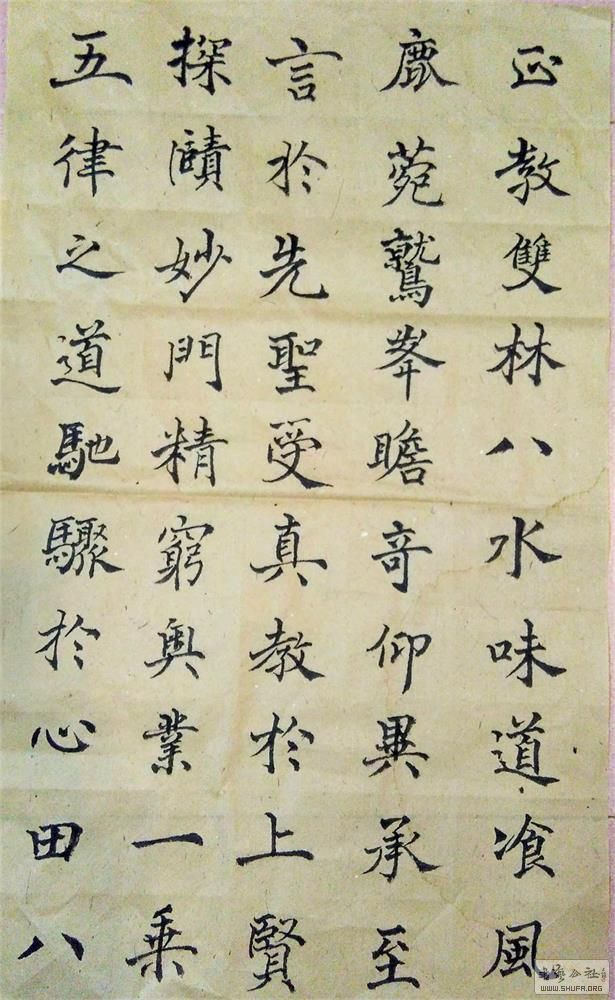 正教雙林八水味道飡風
鹿菀鷲峯瞻奇仰異承至
言於先聖受真教於上賢
探賾妙門精窮奥業一乗
五律之道馳驟於心田八
WWW.SHUFA.ORG